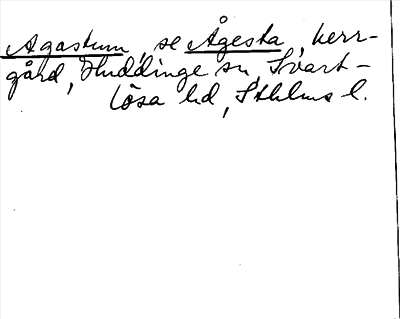 Agastum, se Ågesta, herr-
gård, Huddinge sn, Svart-
lösa hd, Sthlms l.